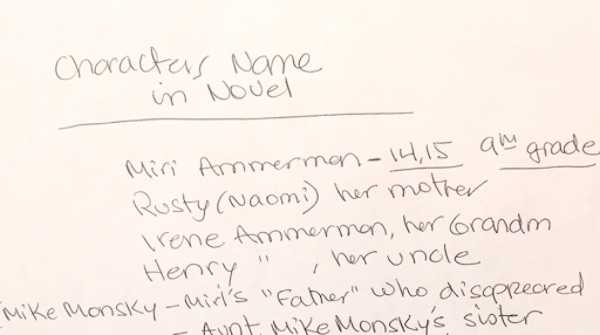 Characters Name
in Novel
Miri Ammerman - 14,15 9th grade
Rusty (Naomi) her mother
Irene Ammerman, her Grandm
Henry " , her uncle
Mike Monsky - Miri's "Father" who disappeared
- Aunt Mike Monsky's sister